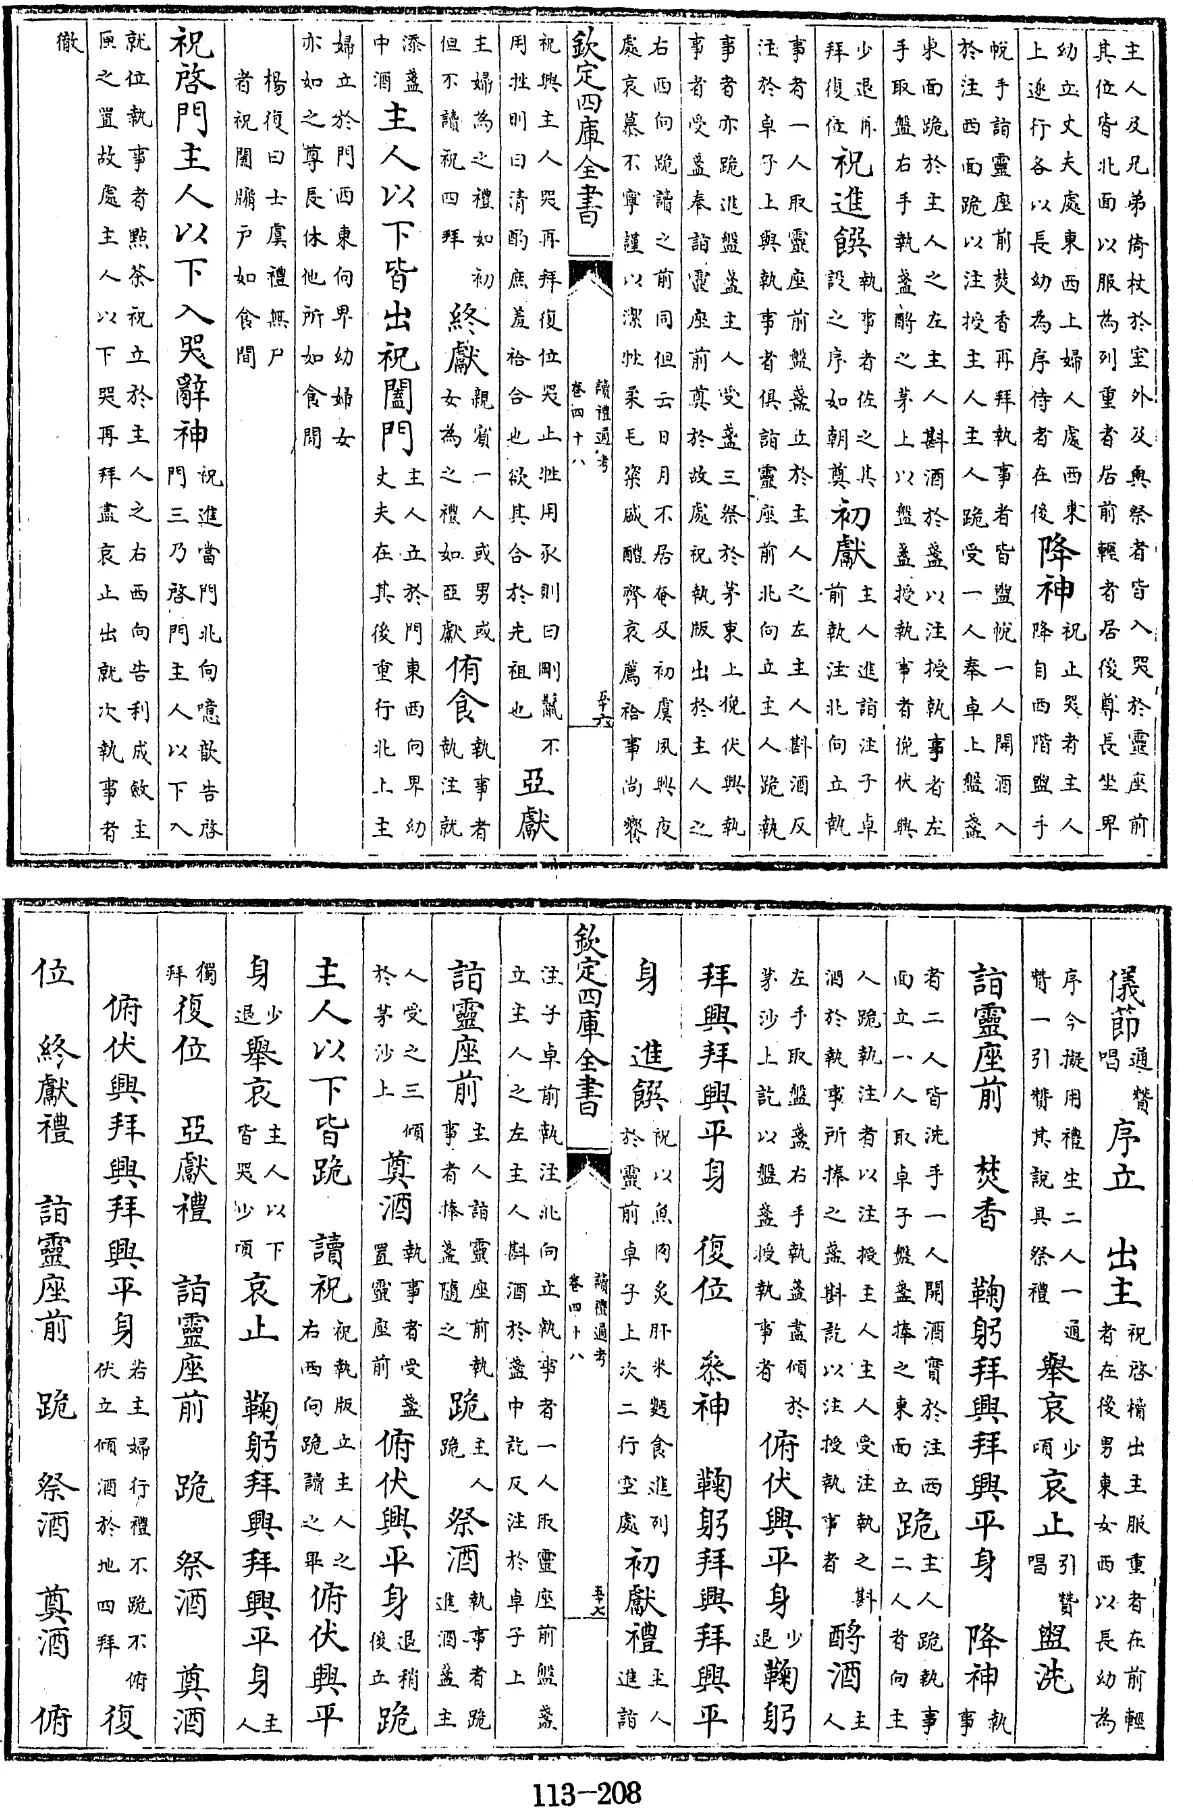 主人及兄弟倚杖於室外及與祭者皆入哭於靈座前
其位皆北面以服為列重者居前輕者居後尊長坐卑
幼立丈夫處東西上婦人處西東上逐行各以長幼為序侍者在後降神祝止哭者主人降自西階盥手
帨手詣靈座前焚香再拜執事者皆盥帨一人開酒入
於注西面跪以注授主人主人跪受一人奉卓上盤盞
東面跪於主人之左主人斟酒於盞以注授執事者左
手取盤右手執盞酹之茅上以盤盞授執事者俛伏興
少退再拜復位祝進饌執事者佐之其設之序如朝奠初獻主人進詣注子卓前執注北向立執
事者一人取靈座前盤盞立於主人之左主人斟酒反
注於卓子上與執事者俱詣靈座前北向立主人跪執
事者亦跪進盤盞主人受盞三祭於茅束上俛伏興執
事者受盞奉詣靈座前奠於故處祝執版出於主人之
右西向跪讀之前同但云日月不居奄及初虞夙興夜
處哀慕不寧謹以潔牲柔毛粢盛醴齊哀薦祫事尚饗
欽定四庫全書
讀禮通考
卷四十八
五十六
祝興主人哭再拜復位哭止牲用豕則曰剛鬛不用牲則曰清酌庶羞祫合也欲其合於先祖也亞獻
主婦為之禮如初但不讀祝四拜終獻親賓一人或男或女為之禮如亞獻侑食執事者執注就
添盞中酒主人以下皆出祝闔門主人立於門東西向卑幼丈夫在其後重行北上主
婦立於門西東向卑幼婦女
亦如之尊長休他所如食間
楊復曰士虞禮無尸
者祝闔牖戶如食間
祝啓門主人以下入哭辭神祝進當門北向噫歆告啓門三乃啓門主人以下入
就位執事者點茶祝立於主人之右西向告利成斂主
匣之置故處主人以下哭再拜盡哀止出就次執事者
徹
儀節通贊唱序立 出主祝啓櫝出主服重者在前輕者在後男東女西以長幼為
序今擬用禮生二人一通贊一引贊其說具祭禮舉哀少頃哀止引贊唱盥洗
詣靈座前 焚香 鞠躬拜興拜興平身 降神執事
者二人皆洗手一人開酒實於注西面立一人取卓子盤盞捧之東面立跪主人跪執事二人者向主
人跪執注者以注授主人主人受注執之斟酒於執事所捧之盞斟訖以注授執事者酹酒主人
左手取盤盞右手執盞盡傾於茅沙上訖以盤盞授執事者俯伏興平身少退鞠躬
拜興拜興平身 復位 參神 鞠躬拜興拜興平
身 進饌祝以魚肉炙肝米麪食進列於靈前卓子上次二行空處初獻禮主人進詣
欽定四庫全書
讀禮通考
卷四十八
五十七
注子卓前執注北向立執事者一人取靈座前盤盞
立主人之左主人斟酒於盞中訖反注於卓子上
詣靈座前主人詣靈座前執事者捧盞隨之跪主人跪祭酒執事者跪進酒盞主
人受之三傾於茅沙上奠酒執事者受盞置靈座前俯伏興平身退稍後立跪
主人以下皆跪 讀祝祝執版立主人之右西向跪讀之畢俯伏興平
身少退舉哀主人以下皆哭少頃哀止 鞠躬拜興拜興平身主人
獨拜復位 亞獻禮 詣靈座前 跪 祭酒 奠酒
俯伏興拜興拜興平身若主婦行禮不跪不俯伏立傾酒於地四拜復
位 終獻禮 詣靈座前 跪 祭酒 奠酒 俯
113-208